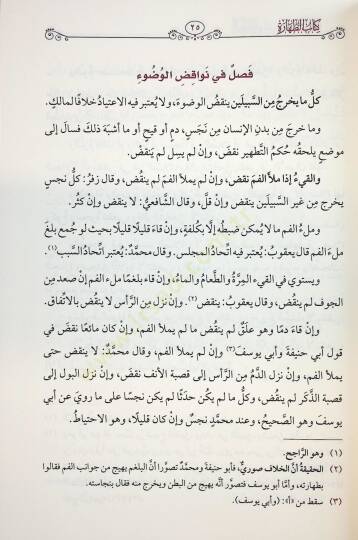 كِتَابُ الطَّهَارَة
٢٥
فَصلٌ في نَواقِضِ الوُضُوءِ
كلُّ ما يخرجُ مِن السَّبيلَين ينقضُ الوضوءَ، ولا يُعتبر فيه الاعتيادُ خلافًا لمالكٍ.
وما خرجَ مِن بدنِ الإنسان مِن نَجَسٍ، دمٍ أو قيحٍ أو ما أشبَهَ ذلكَ فسالَ إلى
موضعٍ يلحقُه حُكمُ التَّطهير نقضَ، وإنْ لم يسِل لم يَنقضْ.
والقيءُ إذا ملأَ الفمَ نقض، وإنْ لم يملأ الفمَ لم ينقض، وقال زفرُ: كلُّ نجسٍ
يخرج مِن غيرِ السَّبيلَين ينقض وإنْ قلَّ، وقال الشَّافعيُّ: لا ينقض وإنْ كثُر.
وملءُ الفم ما لا يُمكن ضبطُه إلَّا بكُلفةٍ، وإنْ قاءَ قليلًا قليلًا بحيث لو جُمع بلغَ
ملءَ الفم قال يعقوبُ: يُعتبر فيه اتِّحادُ المجلس. وقال محمَّدٌ: يُعتبر اتِّحادُ السبب(١).
ويستوي في القيء المِرَّةُ والطَّعامُ والماءُ، وإنْ قاءَ بلغمًا ملء الفم إنْ صعد مِن
الجوف لم ينقُض، وقال يعقوبُ: ينقض(٢). وإنْ نزل مِن الرَّأس لا ينقُض بالاتِّفاق.
وإنْ قاءَ دمًا وهو علَقٌ لم ينقُض ما لم يملأ الفم، وإنْ كان مائعًا نقضَ في
قول أبي حنيفةَ وأبي يوسفَ(٣) وإنْ لم يملأ الفم، وقال محمَّدٌ: لا ينقض حتى
يملأ الفم، وإنْ نزل الدَّمُ مِن الرَّأس إلى قصبة الأنف نقضَ، وإنْ نزل البول إلى
قصبة الذَّكَر لم ينقُض، وكلُّ ما لم يكُن حدَثًا لم يكن نجسًا على ما روي عن أبي
يوسفَ وهو الصَّحيحُ، وعند محمَّدٍ نجسٌ وإنْ كان قليلًا، وهو الاحتياطُ.
(١) وهو الرَّاجح.
(٢) الحقيقةُ أنَّ الخلاف صوريٌّ، فأبو حنيفةَ ومحمَّدٌ تصوَّرا أنَّ البلغم يهيج من جوانب الفم فقالوا
بطهارته، وأمَّا أبو يوسف فتصوَّر أنَّه يهيج من البطن ويخرج منه فقال بنجاسته.
(٣) سقط من «أ»: (وأبي يوسف).